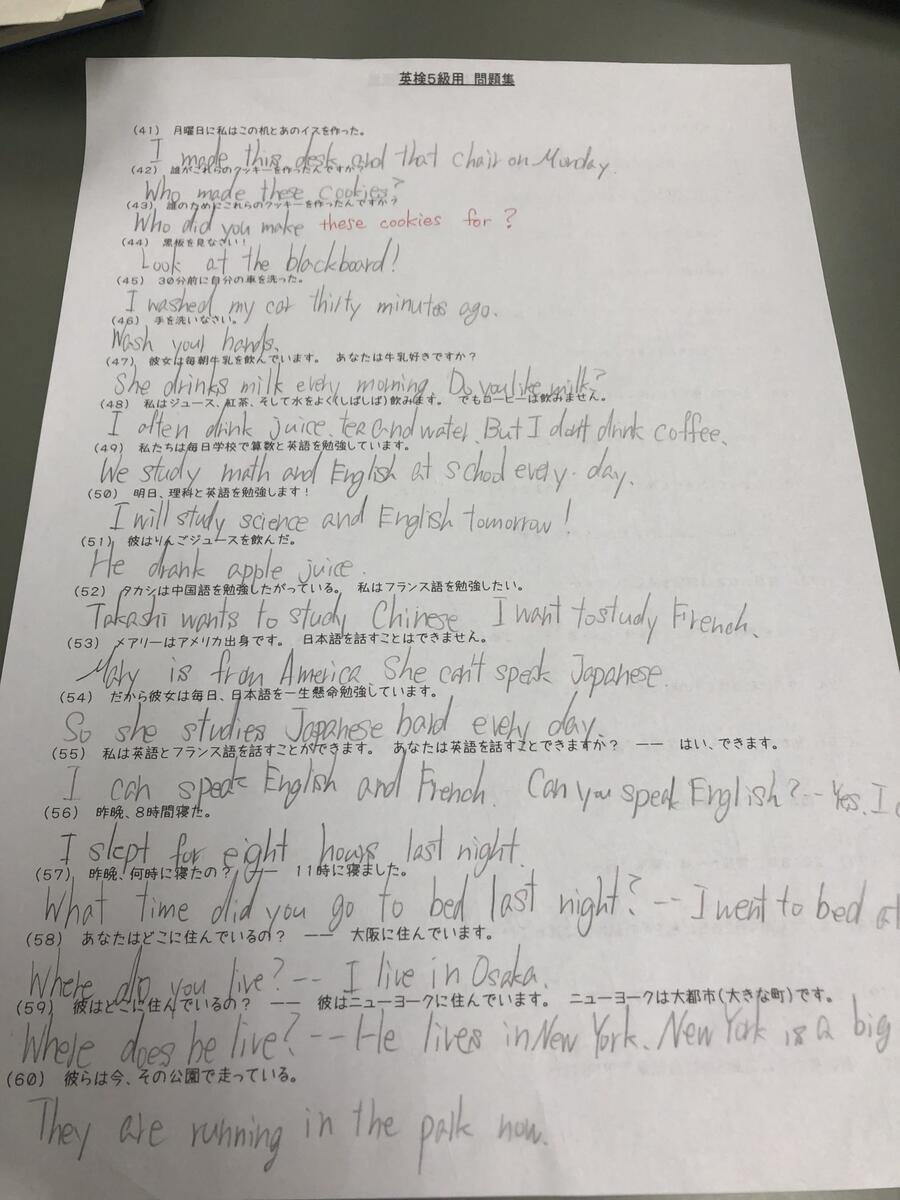 英検5級用 問題集
(41) 月曜日に私はこの机とあのイスを作った。
I made this desk and that chair on Monday.
(42) 誰がこれらのクッキーを作ったんですか?
Who made these cookies?
(43) 誰のためにこれらのクッキーを作ったんですか?
Who did you make these cookies for?
(44) 黒板を見なさい!
Look at the blackboard!
(45) 30分前に自分の車を洗った。
I washed my car thirty minutes ago.
(46) 手を洗いなさい。
Wash your hands.
(47) 彼女は毎朝牛乳を飲んでいます。 あなたは牛乳好きですか?
She drinks milk every morning. Do you like milk?
(48) 私はジュース、紅茶、そして水をよく(しばしば)飲みます。 でもコーヒーは飲みません。
I often drink juice, tea and water. But I don't drink coffee.
(49) 私たちは毎日学校で算数と英語を勉強しています。
We study math and English at school every day.
(50) 明日、理科と英語を勉強します!
I will study science and English tomorrow!
(51) 彼はりんごジュースを飲んだ。
He drank apple juice.
(52) タカシは中国語を勉強したがっている。 私はフランス語を勉強したい。
Takashi wants to study Chinese. I want to study French.
(53) メアリーはアメリカ出身です。 日本語を話すことはできません。
Mary is from America. She can't speak Japanese.
(54) だから彼女は毎日、日本語を一生懸命勉強しています。
So she studies Japanese hard every day.
(55) 私は英語とフランス語を話すことができます。 あなたは英語を話すことできますか? —— はい、できます。
I can speak English and French. Can you speak English? -- Yes, I c
(56) 昨晩、8時間寝た。
I slept for eight hours last night.
(57) 昨晩、何時に寝たの? —— 11時に寝ました。
What time did you go to bed last night? -- I went to bed at
(58) あなたはどこに住んでいるの? —— 大阪に住んでいます。
Where do you live? -- I live in Osaka.
(59) 彼はどこに住んでいるの? —— 彼はニューヨークに住んでいます。 ニューヨークは大都市(大きな町)です。
Where does he live? -- He lives in New York. New York is a big
(60) 彼らは今、その公園で走っている。
They are running in the park now.